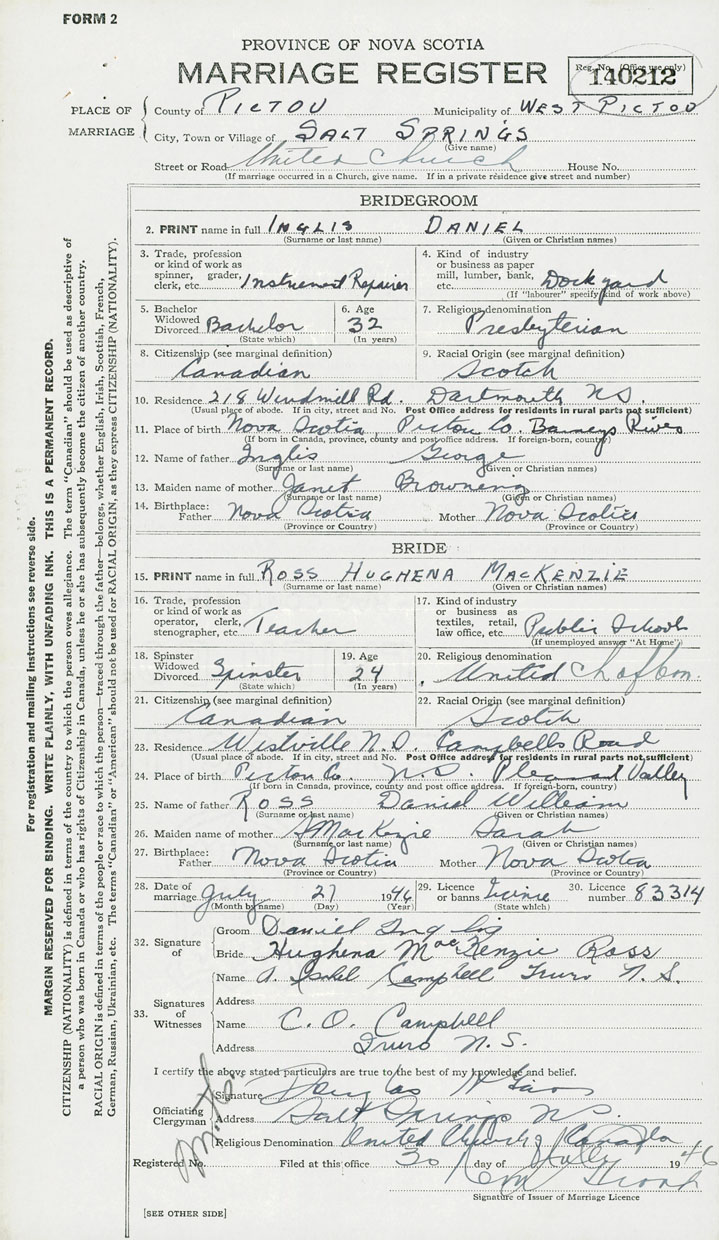 FORM 2
PROVINCE OF NOVA SCOTIA
MARRIAGE REGISTER
Reg. No. (Office use only)
140212
PLACE OF MARRIAGE
County of PICTOU Municipality of WEST PICTOU
City, Town or Village of SALT SPRINGS
(Give name)
Street or Road United Church House No.
(If marriage occurred in a Church, give name. If in a private residence give street and number)
BRIDEGROOM
2. PRINT name in full INGLIS DANIEL
(Surname or last name) (Given or Christian names)
3. Trade, profession or kind of work as spinner, grader, clerk, etc. Instrument Repairer
4. Kind of industry or business as paper mill, lumber, bank, etc. Dockyard
(If "labourer" specify kind of work above)
5. Bachelor Widowed Divorced Bachelor
(State which)
6. Age 32
(In years)
7. Religious denomination
Presbyterian
8. Citizenship (see marginal definition)
Canadian
9. Racial Origin (see marginal definition)
Scotch
10. Residence 218 Windmill Rd. Dartmouth NS.
(Usual place of abode. If in city, street and No. Post Office address for residents in rural parts not sufficient)
11. Place of birth Nova Scotia, Pictou Co. Barneys River
(If born in Canada, province, county and post office address. If foreign-born, country)
12. Name of father Inglis George
(Surname or last name) (Given or Christian names)
13. Maiden name of mother Janet Browning
(Surname or last name) (Given or Christian names)
14. Birthplace: Father Nova Scotia Mother Nova Scotia
(Province or Country) (Province or Country)
BRIDE
15. PRINT name in full ROSS HUGHENA MACKENZIE
(Surname or last name) (Given or Christian names)
16. Trade, profession or kind of work as operator, clerk, stenographer, etc. Teacher
17. Kind of industry or business as textiles, retail, law office, etc. Public School
(If unemployed answer "At Home")
18. Spinster Widowed Divorced Spinster
(State which)
19. Age 24
(In years)
20. Religious denomination
United Ch of Can.
21. Citizenship (see marginal definition)
Canadian
22. Racial Origin (see marginal definition)
Scotch
23. Residence Westville N.S. Campbells Road
(Usual place of abode. If in city, street and No. Post Office address for residents in rural parts not sufficient)
24. Place of birth Pictou Co. N.S. Pleasant Valley
(If born in Canada, province, county and post office address. If foreign-born, country)
25. Name of father ROSS Daniel William
(Surname or last name) (Given or Christian names)
26. Maiden name of mother MacKenzie Sarah
(Surname or last name) (Given or Christian names)
27. Birthplace: Father Nova Scotia Mother Nova Scotia
(Province or Country) (Province or Country)
28. Date of marriage July 27 1946
(Month by name) (Day) (Year)
29. Licence or banns Licence
30. Licence number 83314
32. Signature of
Groom Daniel Inglis
Bride Hughena MacKenzie Ross
33. Signatures of Witnesses
Name A. Isabel Campbell Truro N.S.
Address
Name C. O. Campbell
Address Truro N.S.
I certify the above stated particulars are true to the best of my knowledge and belief.
Officiating Clergyman
Signature Douglas H
Address Salt Springs NS.
Religious Denomination United Church of Canada
Registered No. Filed at this office 30 day of July 1946
Signature of Issuer of Marriage Licence
[SEE OTHER SIDE]
For registration and mailing instructions see reverse side.
MARGIN RESERVED FOR BINDING. WRITE PLAINLY, WITH UNFADING INK. THIS IS A PERMANENT RECORD.
CITIZENSHIP (NATIONALITY) is defined in terms of the country to which the person owes allegiance. The term "Canadian" should be used as descriptive of
a person who was born in Canada or who has rights of Citizenship in Canada, unless he or she has subsequently become the citizen of another country.
RACIAL ORIGIN is defined in terms of the people or race to which the person—traced through the father—belongs, whether English, Irish, Scottish, French,
German, Russian, Ukrainian, etc. The terms "Canadian" or "American" should not be used for RACIAL ORIGIN, as they express CITIZENSHIP (NATIONALITY).